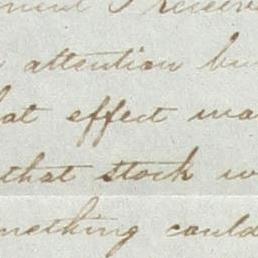 I receive
attention bu
at effect ma
that stock w
mething could